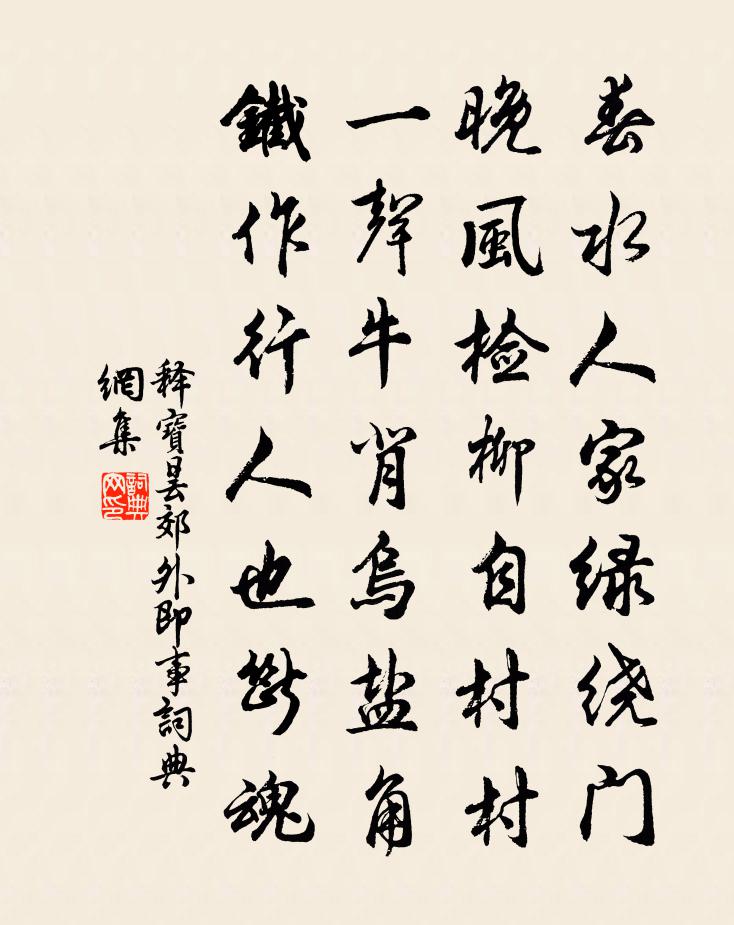 春水人家绿绕门
晚風检柳自村村
一聲牛背烏盐角
鐵作行人也斷魂
释寶昙郊外即事詞典
網集
詞典
网印